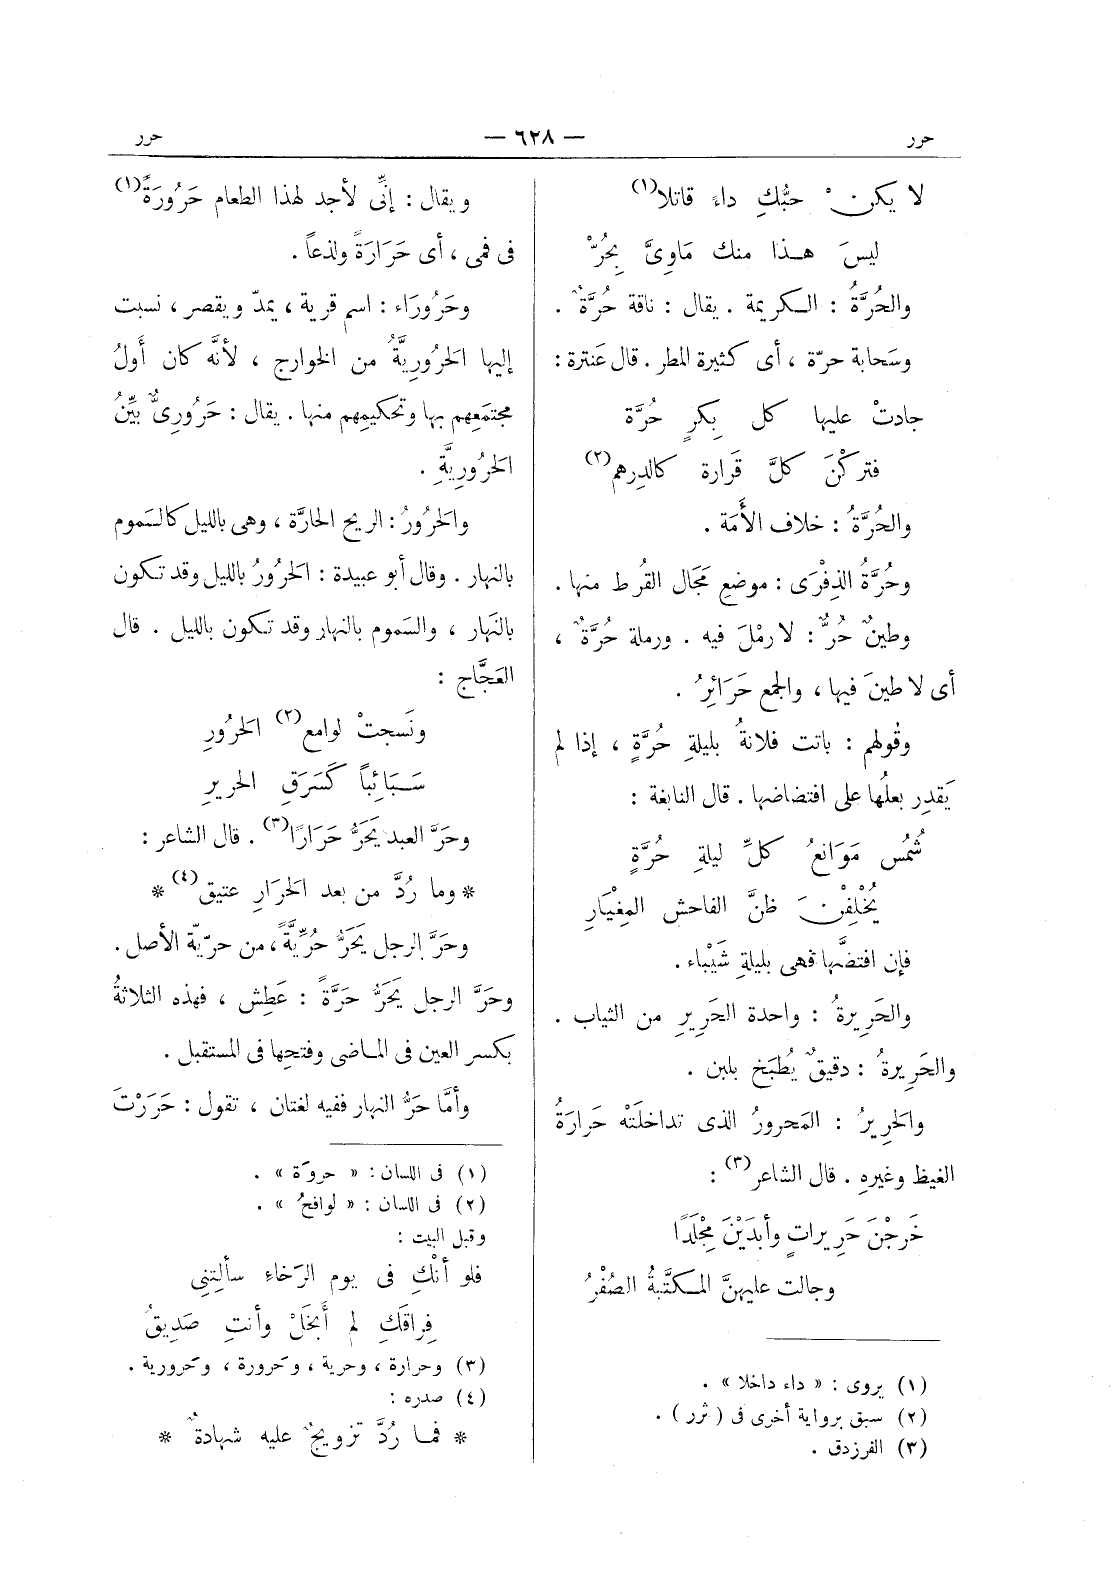 حرر — ٦٢٨ — حرر
لا يكنْ حبُّكِ داءً قاتلا(١)
ليسَ هـذا منك مَاوِىَّ بِحُرّْ
والحُرَّةُ : الـكريمة . يقال : ناقة حُرَّةٌ .
وسَحابة حرّة ، أى كثيرة المطر . قال عَنترة :
جادتْ عليها كل بِكرٍ حُرَّة
فتركْنَ كلَّ قَرارة كالدِرهم(٢)
والحُرَّةُ : خلاف الأَمَة .
وحُرَّةُ الذِفْرَى : موضع مَجَال القُرط منها .
وطينٌ حُرٌّ : لا رمْلَ فيه . ورملة حُرَّةٌ ،
أى لا طينَ فيها ، والجمع حَرَائِرُ .
وقولهم : باتت فلانةُ بليلةِ حُرَّةٍ ، إذا لم
يَقدِر بعلُها على افتضاضها . قال النابغة :
شُمُس مَوَانعُ كلِّ ليلةِ حُرَّةٍ
يُخْلِفْنَ ظنَّ الفاحش المِغْيَارِ
فإن افتضَّها فهى بليلةِ شَيْباء .
والحَرِيرةُ : واحدة الحَرِيرِ من الثياب .
والحَرِيرةُ : دقيقٌ يُطبَخ بلبن .
والحَرِيرُ : المَحرورُ الذى تداخلَتْه حَرارَةُ
الغيظ وغيرِهِ . قال الشاعر(٣) :
خَرجْنَ حَرِيراتٍ وأبدَيْنَ مِجْلَدًا
وجالت عليهنَّ المـكتَّبةُ الصُفْرُ
(١) يروى : « داء داخلا » .
(٢) سبق برواية أخرى فى ( ثرر ) .
(٣) الفرزدق .
ويقال : إنِّى لأجد لهذا الطعام حَرُورَةً(١)
فى فمى ، أى حَرَارَةً ولذعاً .
وحَرُورَاء : اسم قرية ، يمدّ ويقصر ، نسبت
إليها الحَرُورِيَّةُ من الخوارج ، لأنَّه كان أَولُ
مجتمَعِهم بها وتحكيمِهم منها . يقال : حَرُورِىٌّ بَيِّنُ
الحَرُورِيَّةِ .
والحَرُورُ : الريح الحارَّة ، وهى بالليل كالسَموم
بالنهار . وقال أبو عبيدة : الحَرُورُ بالليل وقد تـكون
بالنَهار ، والسَموم بالنهار وقد تـكون بالليل . قال
العَجَّاج :
ونَسجتْ لوامع(٢) الحَرُورِ
سَبَائِباً كَسَرَقِ الحريرِ
وحَرَّ العبد يَحَرُّ حَرَارًا(٣) . قال الشاعر :
* وما رُدَّ من بعد الحَرَارِ عتيق(٤) *
وحَرَّ الرجل يَحَرُّ حُرِّيَّةً ، من حرّيّة الأصل .
وحَرَّ الرجل يَحَرُّ حَرَّةً : عَطِش ، فهذه الثلاثةُ
بكسر العين فى المـاضى وفتحِها فى المستقبل .
وأمَّا حَرُّ النهار ففيه لغتان ، تقول : حَرَرْتَ
(١) فى اللسان : « حروّة » .
(٢) فى اللسان : « لوافحُ » .
وقبل البيت :
فلو أنْكِ فى يوم الرَخاءِ سألتِنِى
فِراقَكِ لم أبخَلْ وأنتِ صَدِيقُ
(٣) وحرارة ، وحرية ، وحَرورة ، وحَرورية .
(٤) صدره :
* فمـا رُدَّ تزويجٌ عليه شهادةٌ *